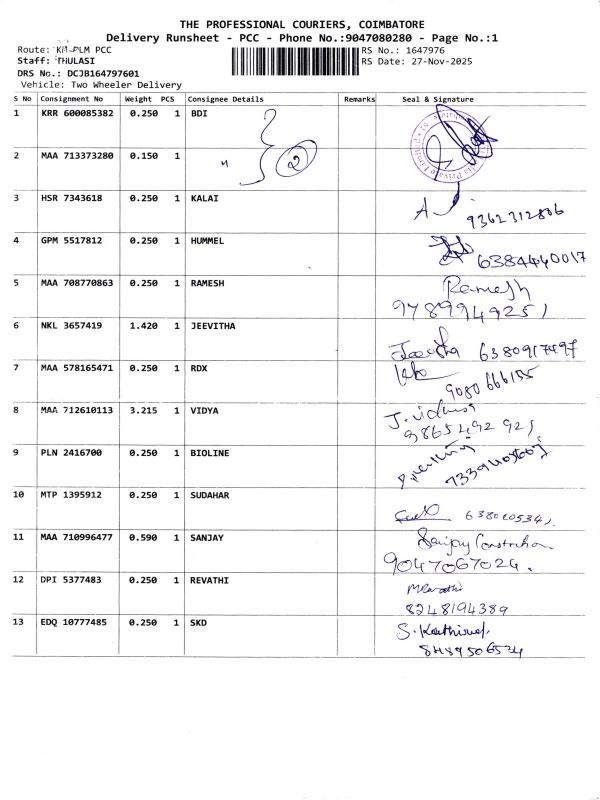 THE PROFESSIONAL COURIERS, COIMBATORE
Delivery Runsheet - PCC - Phone No.:9047080280 - Page No.:1
Route: KM-PLM PCC RS No.: 1647976
Staff: THULASI RS Date: 27-Nov-2025
DRS No.: DCJB164797601
Vehicle: Two Wheeler Delivery
S No Consignment No Weight PCS Consignee Details Remarks Seal & Signature
1 KRR 600085382 0.250 1 BDI
2 MAA 713373280 0.150 1 " 2
3 HSR 7343618 0.250 1 KALAI
9362312806
4 GPM 5517812 0.250 1 HUMMEL
6384440017
5 MAA 708770863 0.250 1 RAMESH Ramesh
9789949251
6 NKL 3657419 1.420 1 JEEVITHA
Jeevitha 6380917497
7 MAA 578165471 0.250 1 RDX
9080666155
8 MAA 712610113 3.215 1 VIDYA J. vidhya
9865492921
9 PLN 2416700 0.250 1 BIOLINE
10 MTP 1395912 0.250 1 SUDAHAR
6380205341
11 MAA 710996477 0.590 1 SANJAY Sanjay Construction
9047067024.
12 DPI 5377483 0.250 1 REVATHI M Revathi
8248194389
13 EDQ 10777485 0.250 1 SKD S. Kathirvel
8489506524